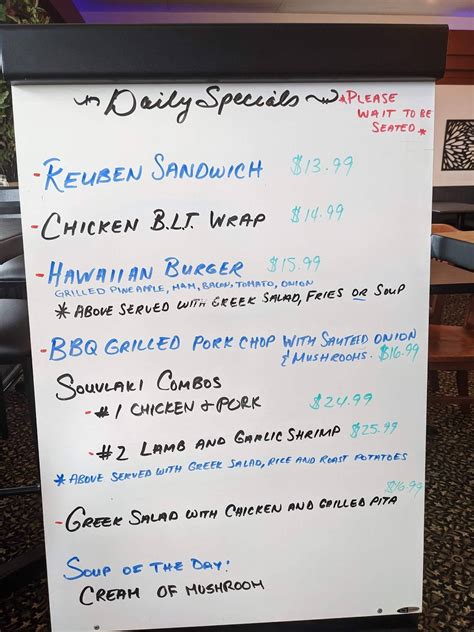 Daily Specials
*PLEASE
WAIT TO BE
SEATED*
- REUBEN SANDWICH $13.99
- CHICKEN B.L.T. WRAP $14.99
- HAWAIIAN BURGER $15.99
GRILLED PINEAPPLE, HAM, BACON, TOMATO, ONION
* ABOVE SERVED WITH GREEK SALAD, FRIES OR SOUP
- BBQ GRILLED PORK CHOP WITH SAUTEED ONION
& MUSHROOMS. $16.99
SOUVLAKI COMBOS
- #1 CHICKEN & PORK $24.99
- #2 LAMB AND GARLIC SHRIMP $25.99
* ABOVE SERVED WITH GREEK SALAD, RICE AND ROAST POTATOES
$16.99
- GREEK SALAD WITH CHICKEN AND GRILLED PITA
SOUP OF THE DAY:
CREAM OF MUSHROOM